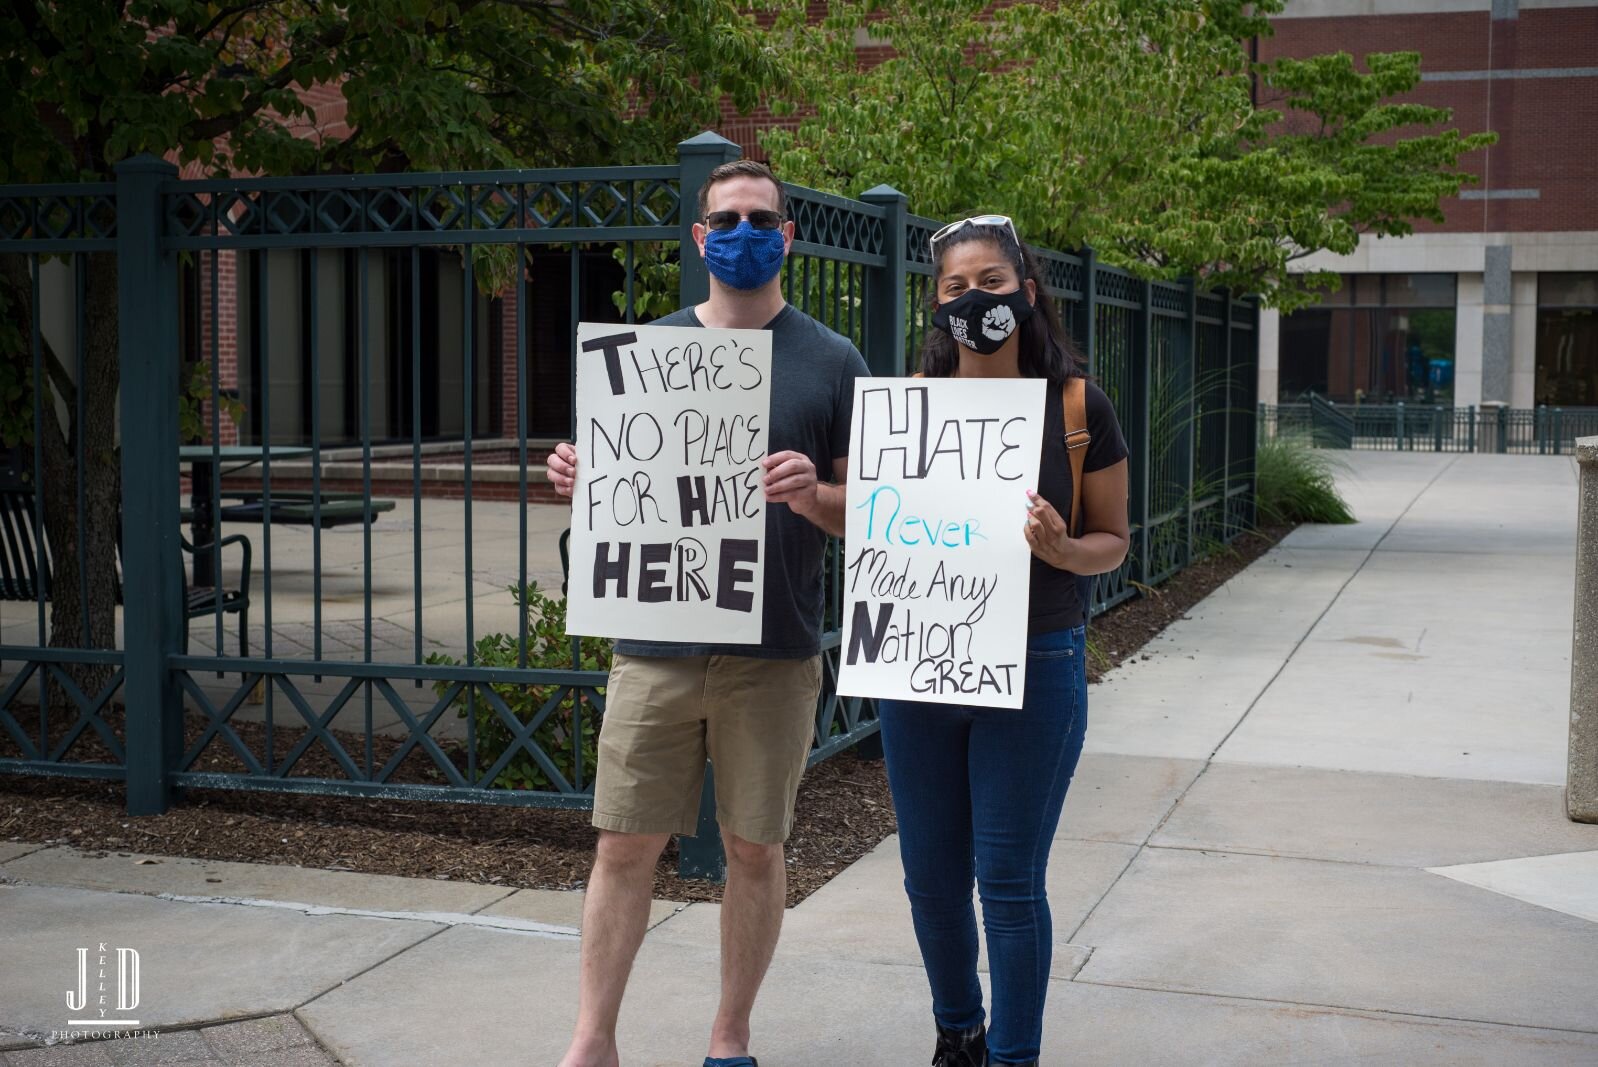 THERE'S
NO PLACE
FOR HATE
HERE
HATE
Never
Made Any
Nation
GREAT
BLACK
LIVES
MATTER
JD
KELLEY
PHOTOGRAPHY